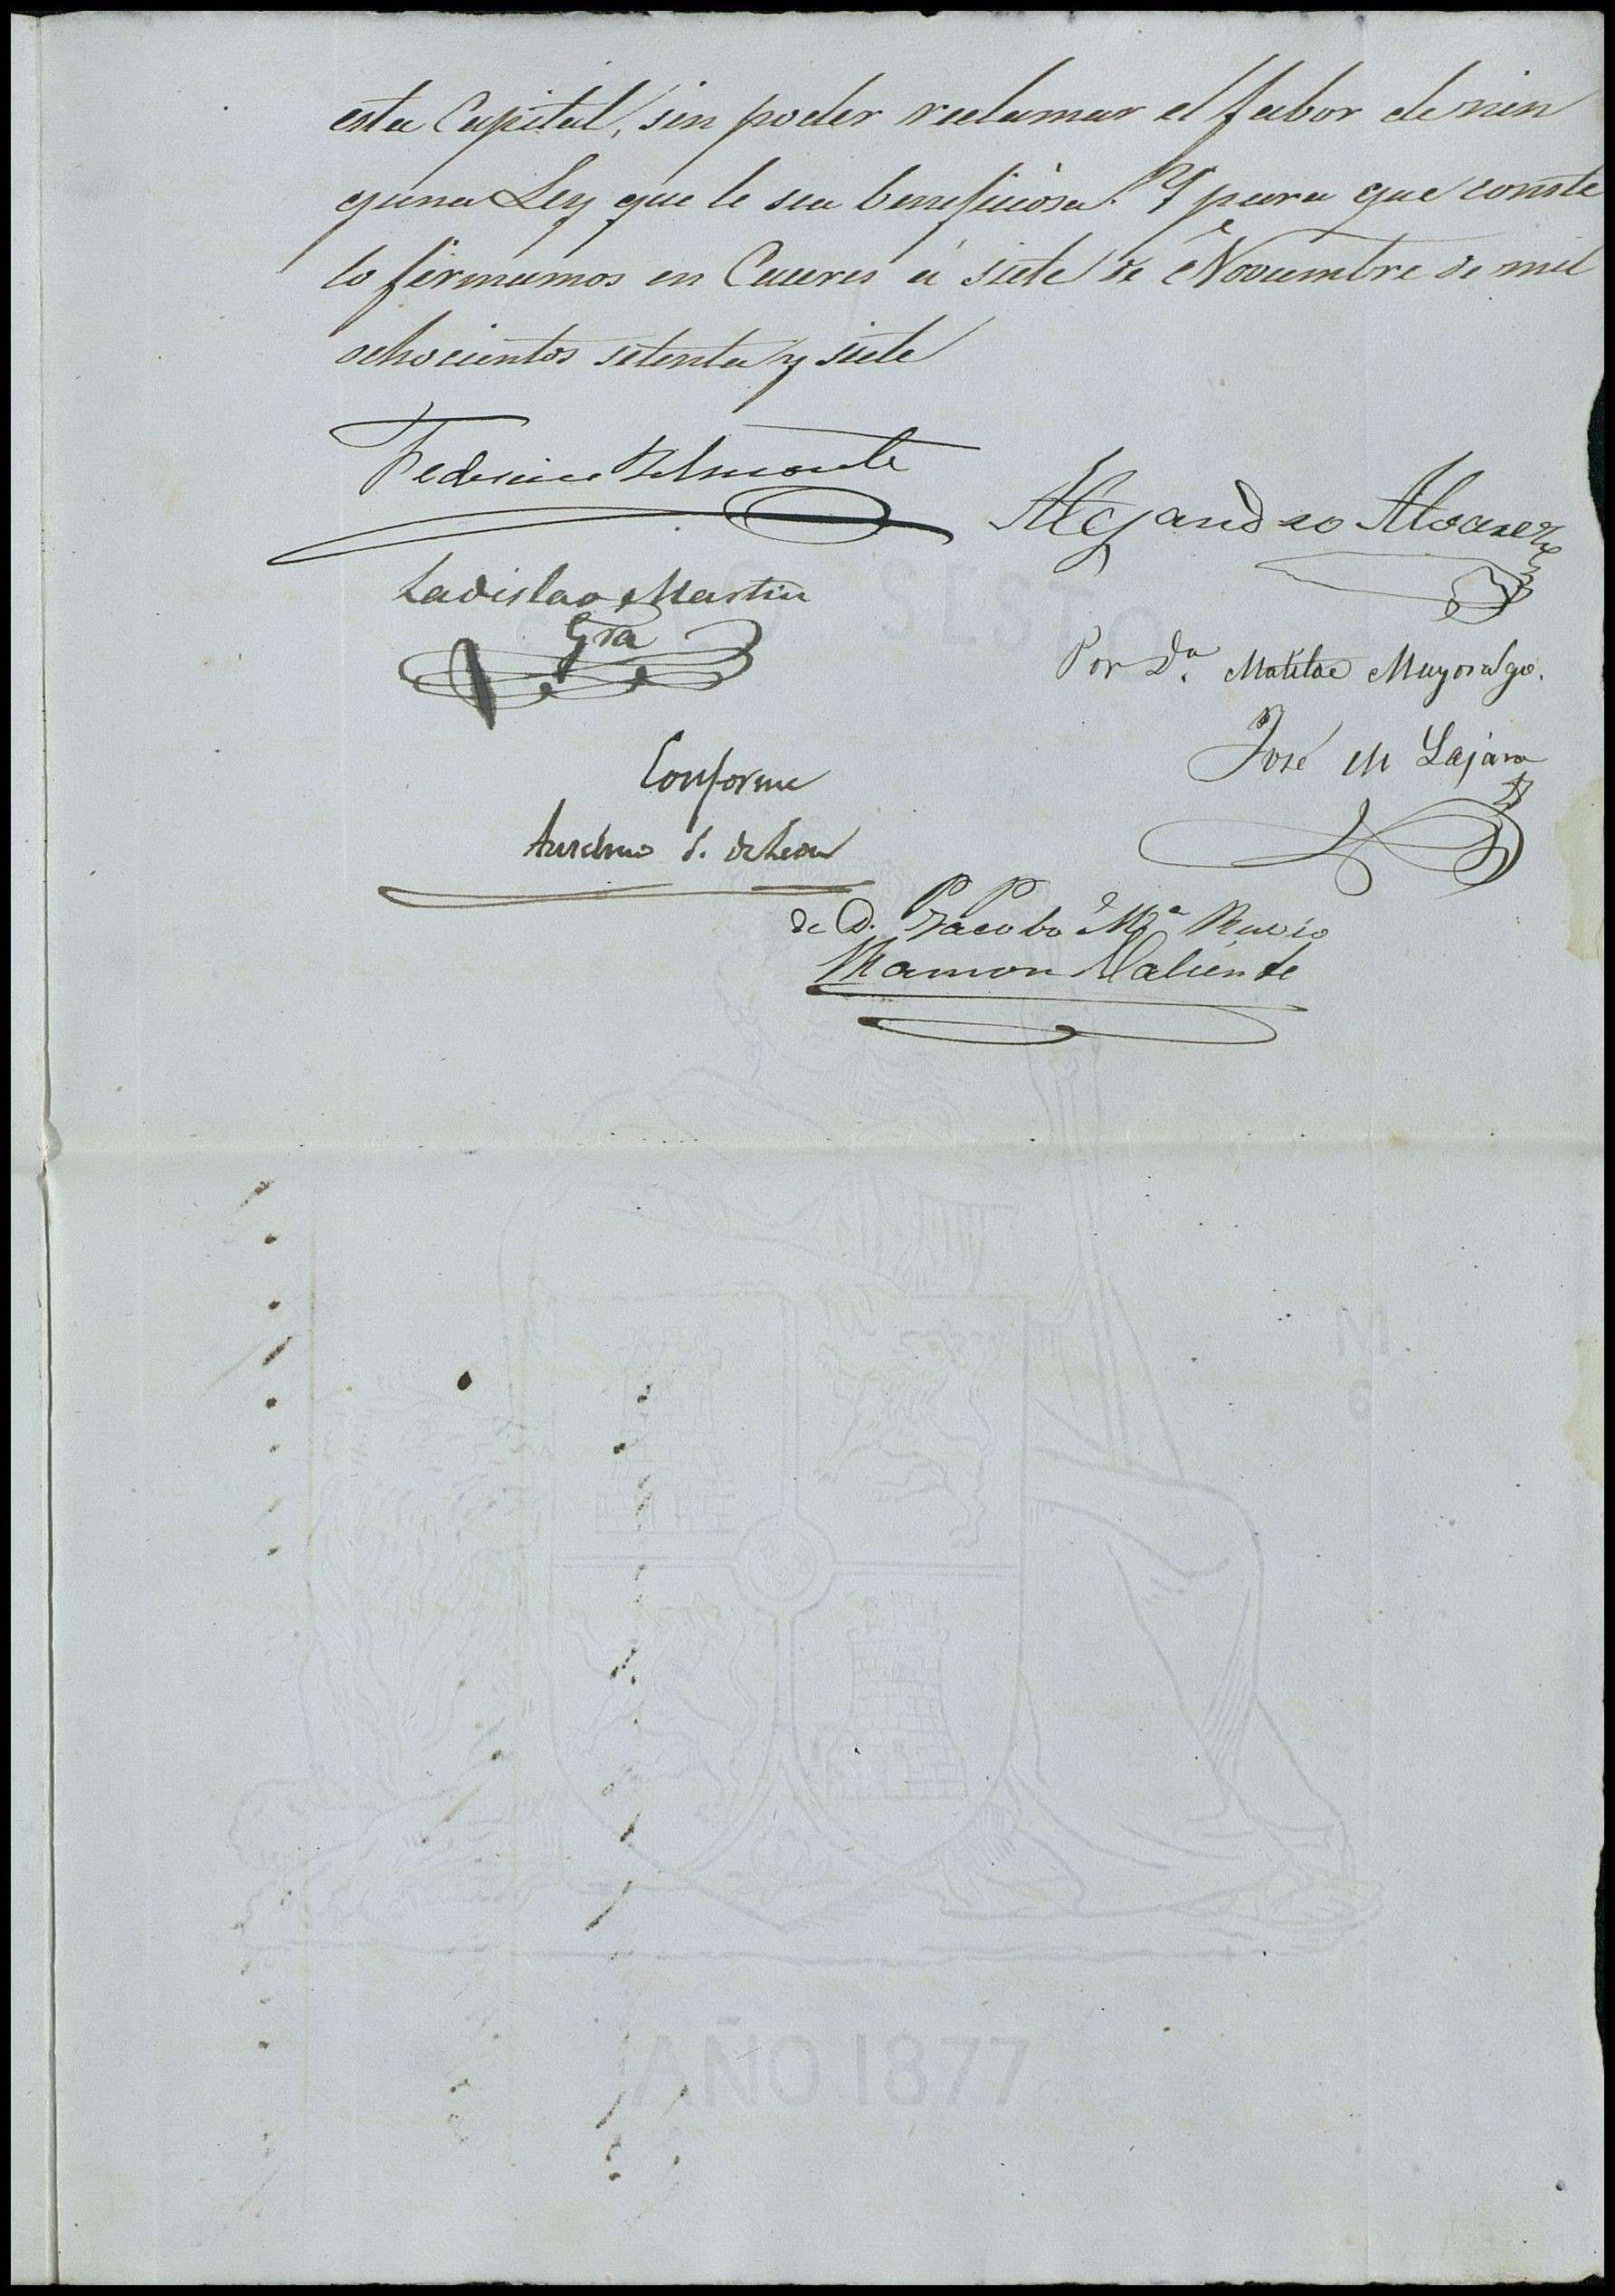 esta Capital, sin poder reclamar el fabor de nin
guna Ley que le sea beneficiosa. Y para que conste
lo firmamos en Caceres á siete de Noviembre de mil
ochocientos setenta y siete
Federico Belmonte
Alejandro Alvarez
Ladislao Martin
Gra
Por Dª. Matilde Mayoralgo.
José M Lajara
Conforme
Anselmo S. de Leon
P P
de D. Jacobo Mª Rubio
Ramon Valiente
SESTO
M.
6
AÑO 1877